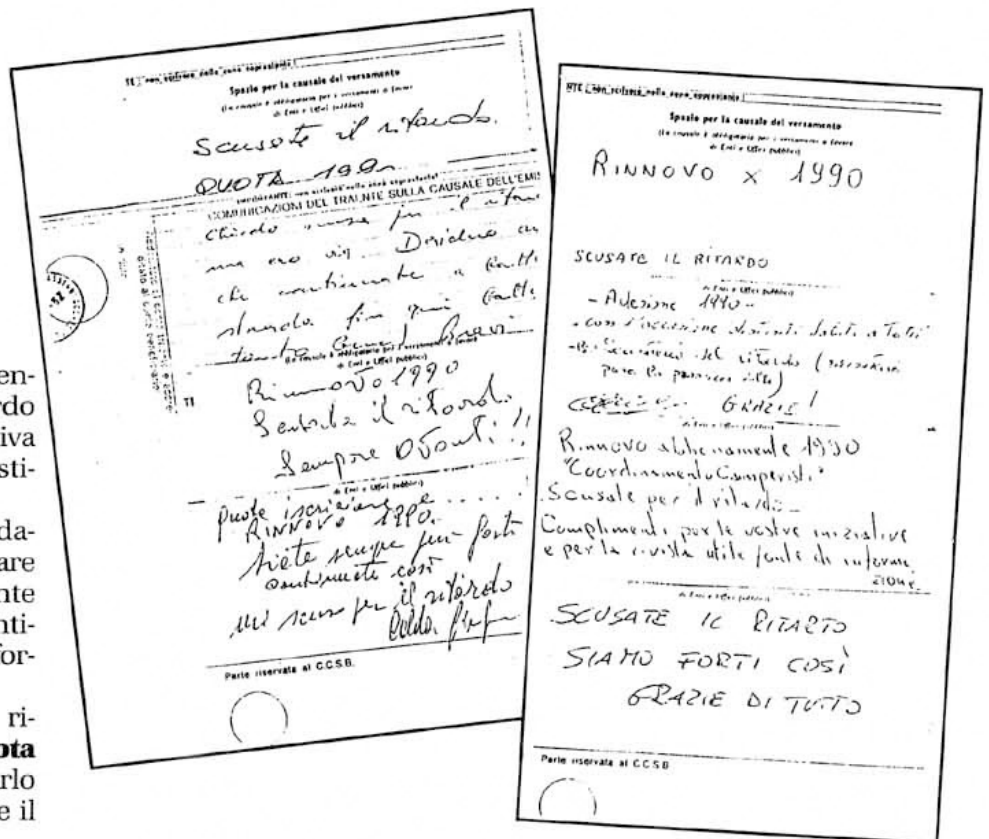 en-
rdo
iva
sti-
da-
are
nte
nti-
for-
ri-
ota
rlo
e il
Spazio per la causale del versamento
(La causale è obbligatoria per i versamenti a favore
di Enti e Uffici pubblici)
Scusate il ritardo.
QUOTA 1990
IMPORTANTE: non scrivere nella zona soprastante!
COMUNICAZIONI DEL TRAENTE SULLA CAUSALE DELL'EMIS
Chiedo scusa per il
che continuate a
(la causale è obbligatoria per i versamenti a favore
di Enti e Uffici pubblici)
Rinnovo 1990
il ritardo
Sempre Avanti!!
di Enti e Uffici pubblici)
iscrizione
RINNOVO 1990.
Siete sempre più forti
continuate così
Mi scuso per il ritardo
Parte riservata ai C.C.S.B.
NTE: non scrivere nella zona soprastante!
Spazio per la causale del versamento
(La causale è obbligatoria per i versamenti a favore
di Enti e Uffici pubblici)
RINNOVO x 1990
SCUSATE IL RITARDO
di Enti e Uffici pubblici)
- Adesione 1990 -
- con l'occasione distinti saluti a tutti
del ritardo
GRAZIE!
di Enti e Uffici pubblici)
Rinnovo abbonamento 1990
"Coordinamento Camperisti"
Scusate per il ritardo -
Complimenti per le vostre iniziative
e per la rivista utile fonte di informa
zione.
di Enti e Uffici pubblici)
SCUSATE IL RITARTO
SIAMO FORTI COSÌ
GRAZIE DI TUTTO
Parte riservata ai C.C.S.B.